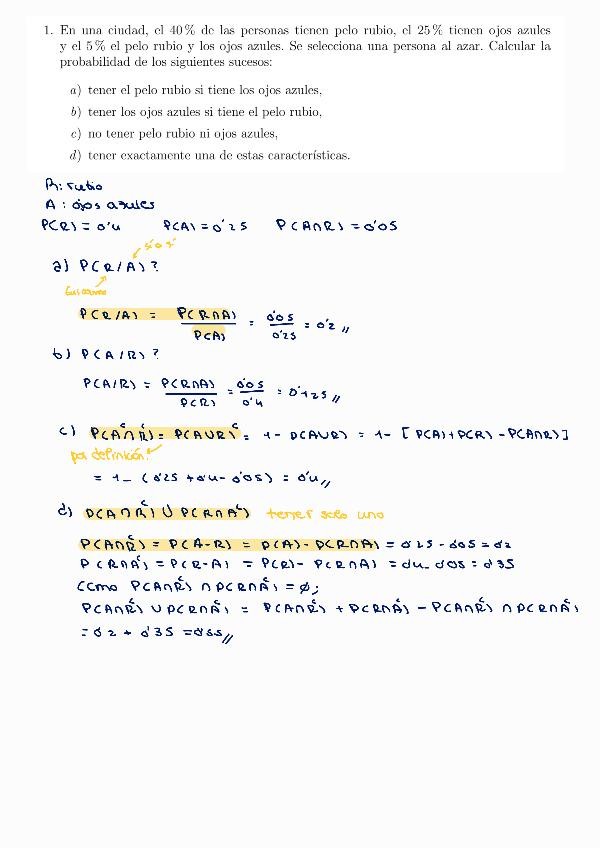 1. En una ciudad, el 40 % de las personas tienen pelo rubio, el 25 % tienen ojos azules
y el 5 % el pelo rubio y los ojos azules. Se selecciona una persona al azar. Calcular la
probabilidad de los siguientes sucesos:
a) tener el pelo rubio si tiene los ojos azules,
b) tener los ojos azules si tiene el pelo rubio,
c) no tener pelo rubio ni ojos azules,
d) tener exactamente una de estas características.
R: rubio
A: ojos azules
P(R) = 0'4 P(A) = 0'25 P(A∩R) = 0'05
a) P(R/A)?
P(R/A) = P(R∩A)/P(A) = 0'05/0'25 = 0'2 //
b) P(A/R)?
P(A/R) = P(R∩A)/P(R) = 0'05/0'4 = 0'125 //
c) P(Aᶜ∩Rᶜ) = P(A∪R)ᶜ = 1 - P(A∪R) = 1 - [P(A) + P(R) - P(A∩R)]
por definición!
= 1 - (0'25 + 0'4 - 0'05) = 0'4 //
d) P(A∩Rᶜ) ∪ P(R∩Aᶜ) tener solo uno
P(A∩Rᶜ) = P(A-R) = P(A) - P(R∩A) = 0'25 - 0'05 = 0'2
P(R∩Aᶜ) = P(R-A) = P(R) - P(R∩A) = 0'4 - 0'05 = 0'35
Como P(A∩Rᶜ) ∩ P(R∩Aᶜ) = ∅;
P(A∩Rᶜ) ∪ P(R∩Aᶜ) = P(A∩Rᶜ) + P(R∩Aᶜ) - P(A∩Rᶜ) ∩ P(R∩Aᶜ)
= 0'2 + 0'35 = 0'55 //